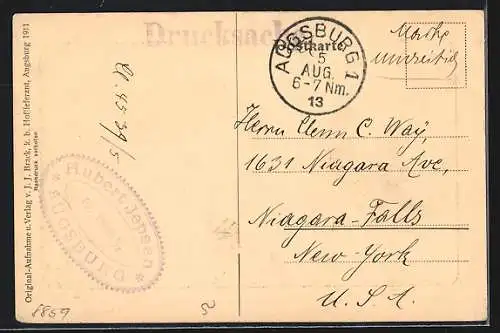 Drucksache
Postkarte
AUGSBURG 1
5
AUG.
6-7 Nm.
13
Marke
Herrn Glenn C. Way,
1631 Niagara Ave,
Niagara-Falls
New-York
U. S. A.
Original-Aufnahme u. Verlag v. J. J. Brack, k. b. Hoflieferant, Augsburg 1911
Nachdruck verboten
* Hubert Jensen *
AUGSBURG
8859